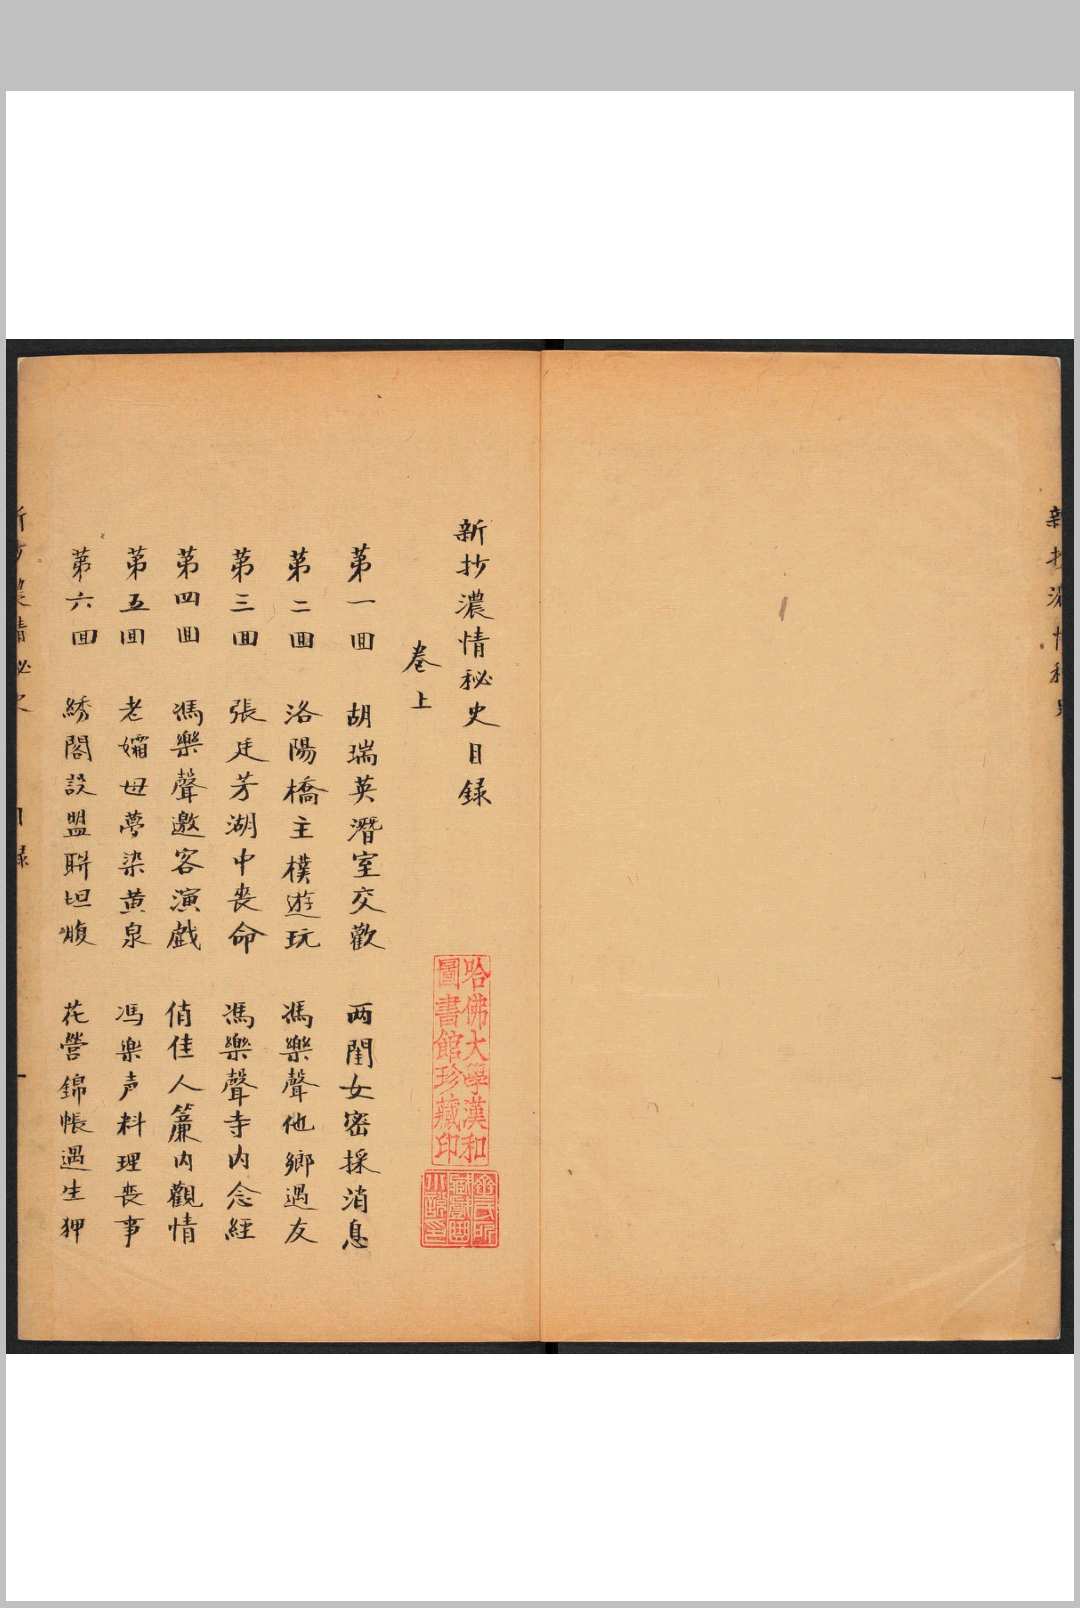 新抄濃情秘史目録
卷上
第一回 胡瑞英潛室交歡 两閨女密採消息
第二回 洛陽橋主樸遊玩 馮樂聲他鄉遇友
第三回 張廷芳湖中丧命 馮樂聲寺内念經
第四回 馮樂聲邀客演戯 俏佳人簾内觀情
第五回 老孀母夢染黄泉 馮樂声料理丧事
第六回 綉閣設盟聨坦腹 花營錦帳遇生狎
哈佛大學漢和
圖書館珍藏印
新抄濃情秘史
目録
一